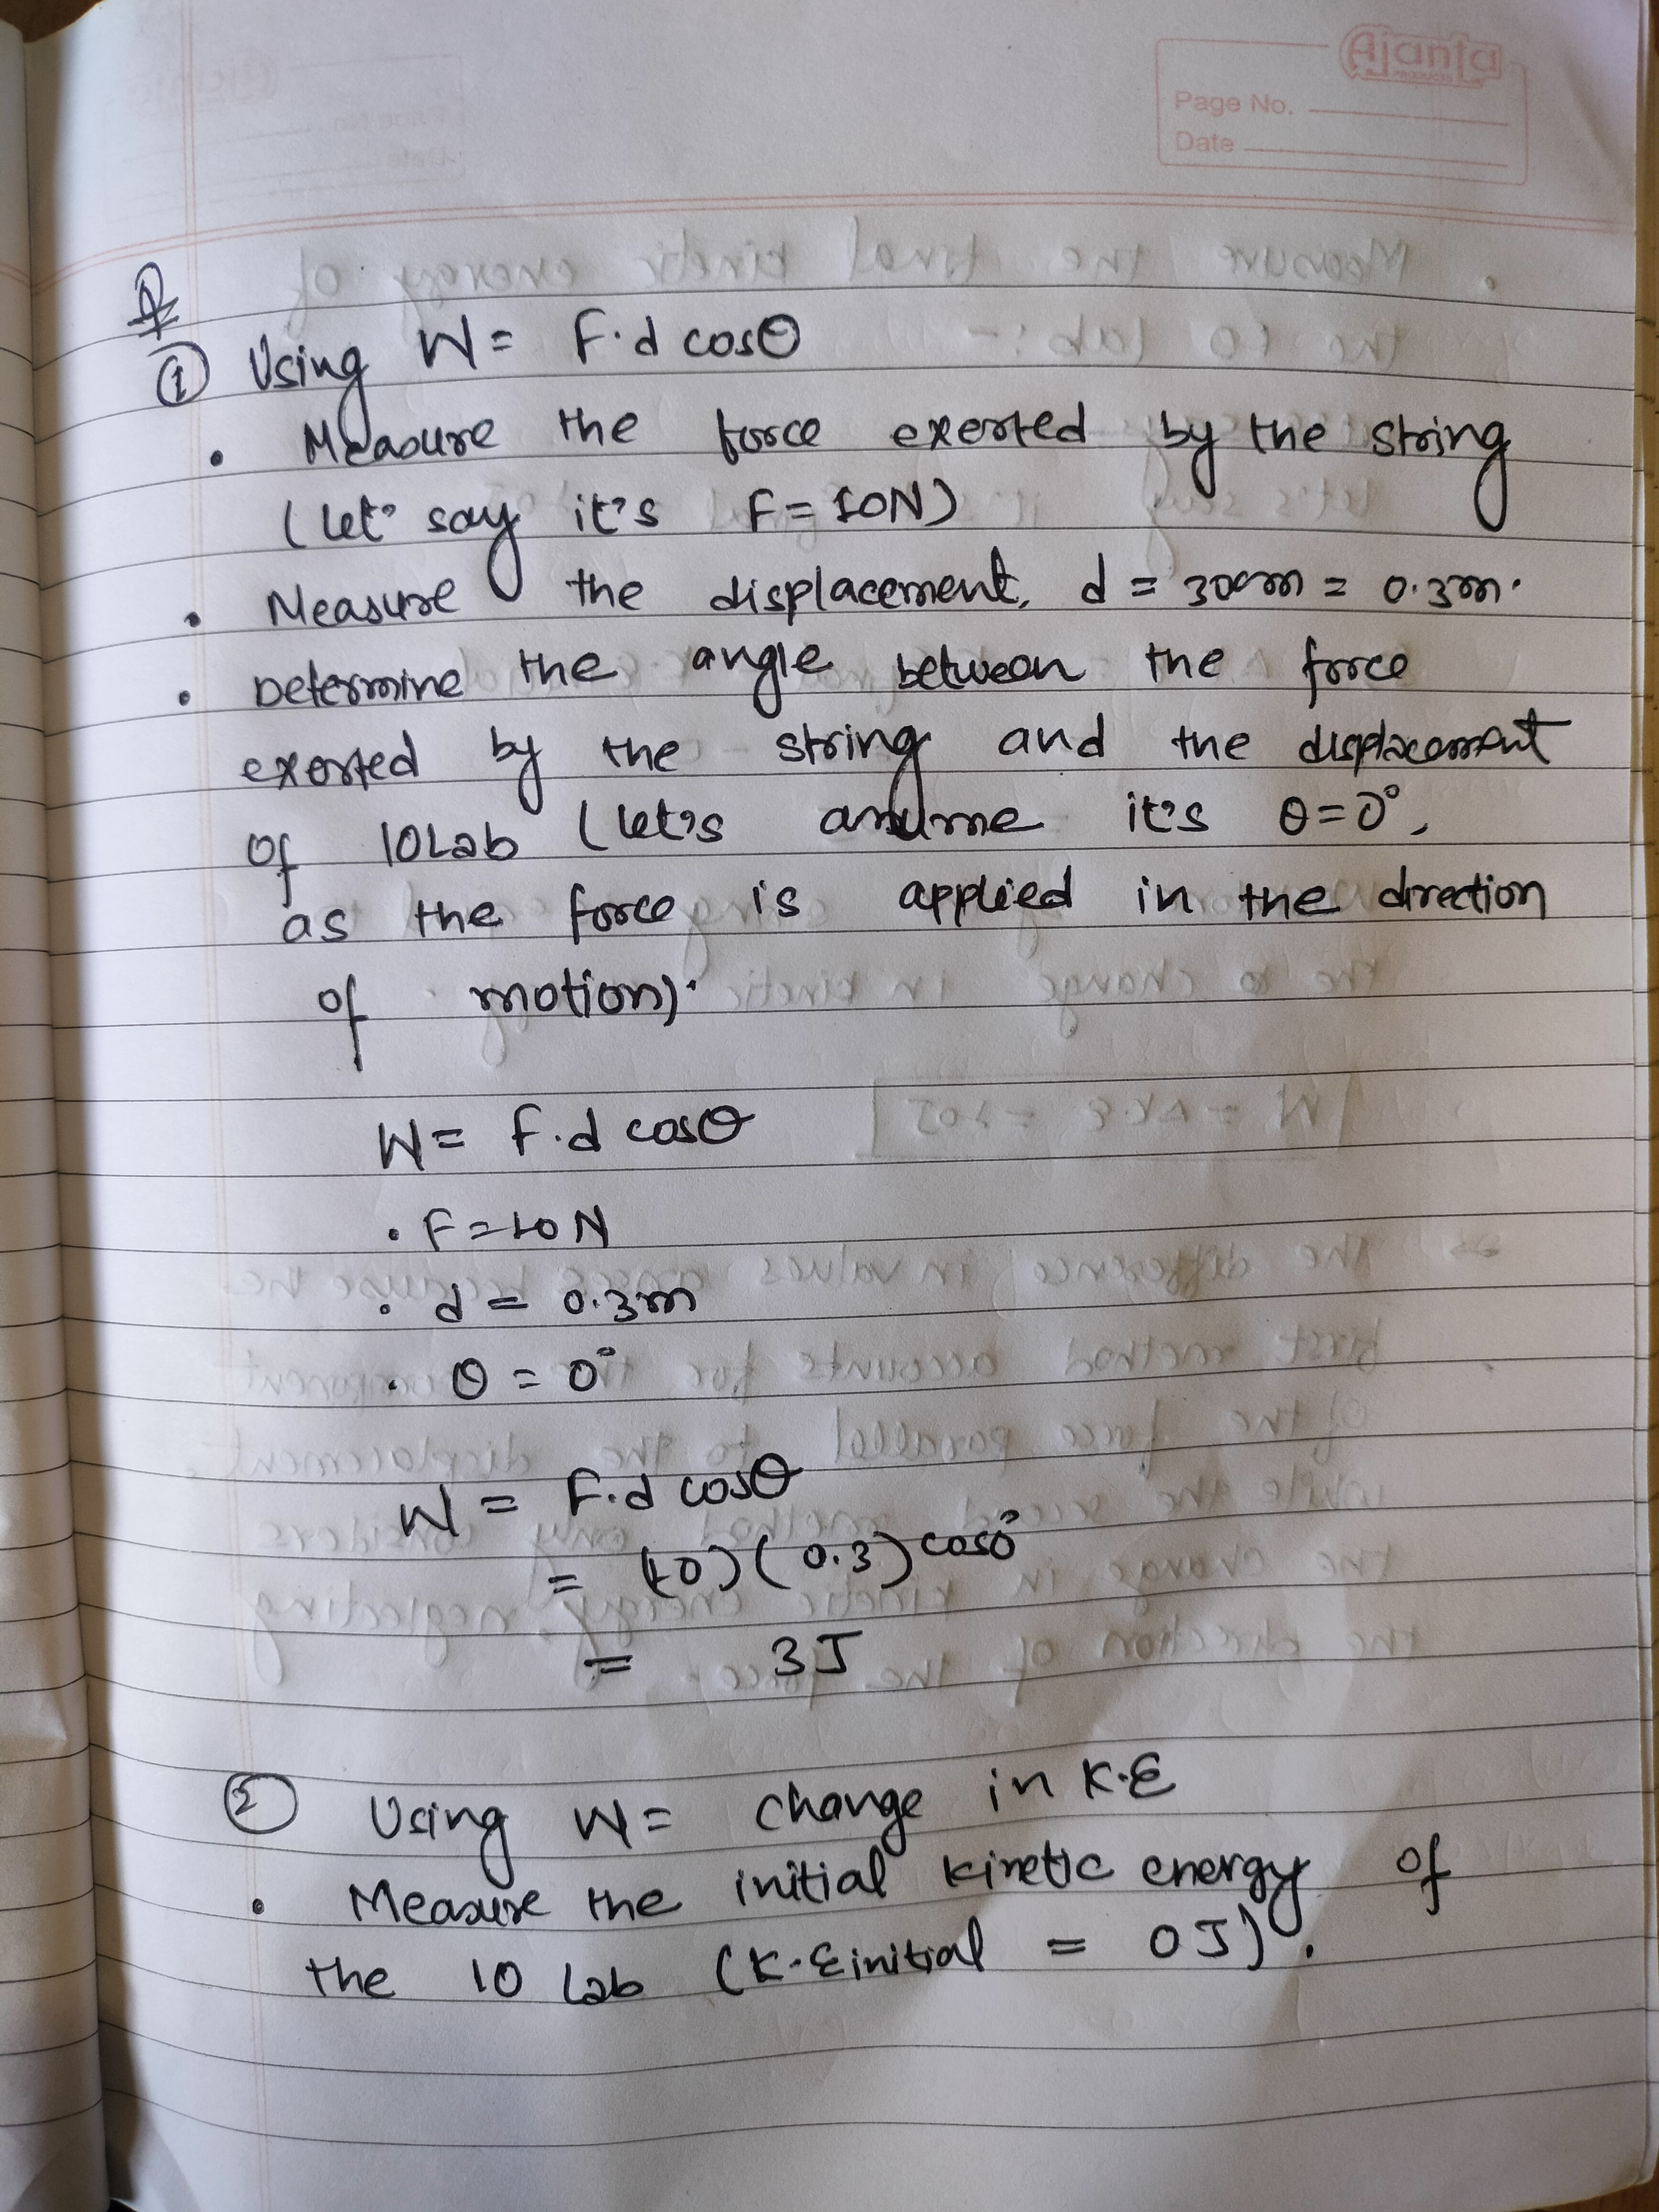 Ajanta
PRODUCTS
Page No.
Date
① Using W = F.d cosθ
• Measure the force exerted by the string
(let' say it's F = 10N)
• Measure the displacement, d = 30cm = 0.3m.
• Determine the angle between the force
exerted by the string and the displacement
of 10Lab (let's assume it's θ=0°,
as the force is applied in the direction
of motion).
W = F.d cosθ
• F = 10N
• d = 0.3m
• θ = 0°
W = F.d cosθ
= (10)(0.3) cos0°
= 3J
② Using W = change in K.E
• Measure the initial kinetic energy of
the 10 Lab (K.Einitial = 0J).